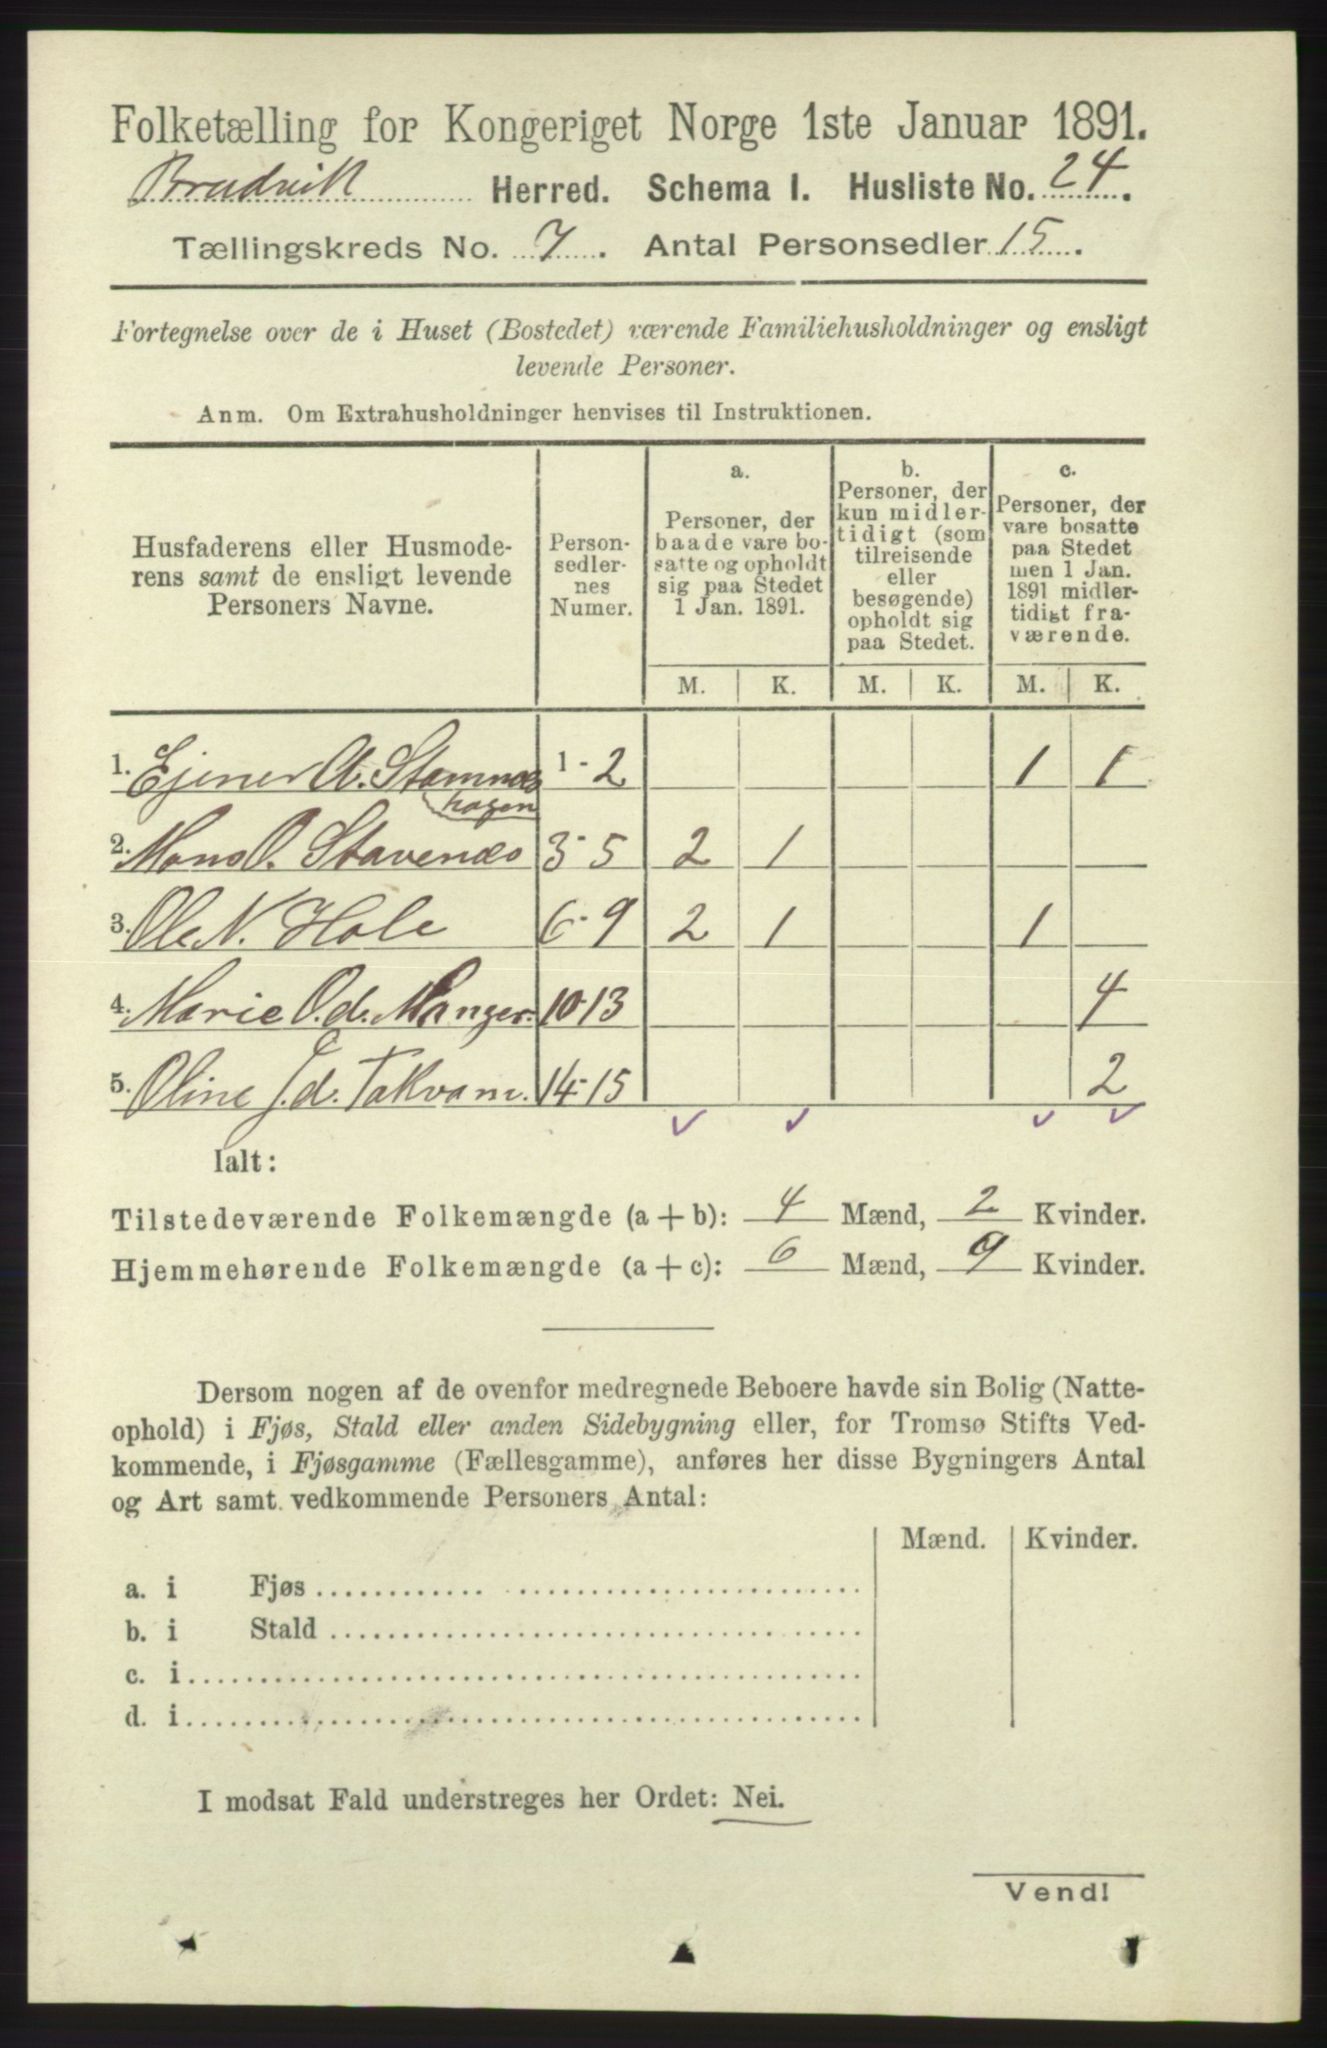 Folketælling for Kongeriget Norge 1ste Januar 1891.
Brudvik Herred. Schema I. Husliste No. 24.
Tællingskreds No. 7. Antal Personsedler 15.
Fortegnelse over de i Huset (Bostedet) værende Familiehusholdninger og ensligt
levende Personer.
Anm. Om Extrahusholdninger henvises til Instruktionen.
Husfaderens eller Husmode-
rens samt de ensligt levende
Personers Navne.
Person-
sedler-
nes
Numer.
a.
Personer, der
baade vare bo-
satte og opholdt
sig paa Stedet
1 Jan. 1891.
b.
Personer, der
kun midler-
tidigt (som
tilreisende
eller
besøgende)
opholdt sig
paa Stedet.
c.
Personer, der
vare bosatte
paa Stedet
men 1 Jan.
1891 midler-
tidigt fra-
værende.
M. K. M. K. M. K.
1. Ejener A. Stamnes 1-2 1 1
hagen
2. Mons O. Stavenes 3-5 2 1
3. Ole N. Hole 6-9 2 1 1
4. Marie O.d. Manger. 10-13 4
5. Oline J.d. Takvam. 14-15 2
Ialt:
Tilstedeværende Folkemængde (a + b): 4 Mænd, 2 Kvinder.
Hjemmehørende Folkemængde (a + c): 6 Mænd, 9 Kvinder.
Dersom nogen af de ovenfor medregnede Beboere havde sin Bolig (Natte-
ophold) i Fjøs, Stald eller anden Sidebygning eller, for Tromsø Stifts Ved-
kommende, i Fjøsgamme (Fællesgamme), anføres her disse Bygningers Antal
og Art samt vedkommende Personers Antal:
Mænd. Kvinder.
a. i Fjøs
b. i Stald
c. i
d. i
I modsat Fald understreges her Ordet: Nei.
Vend!